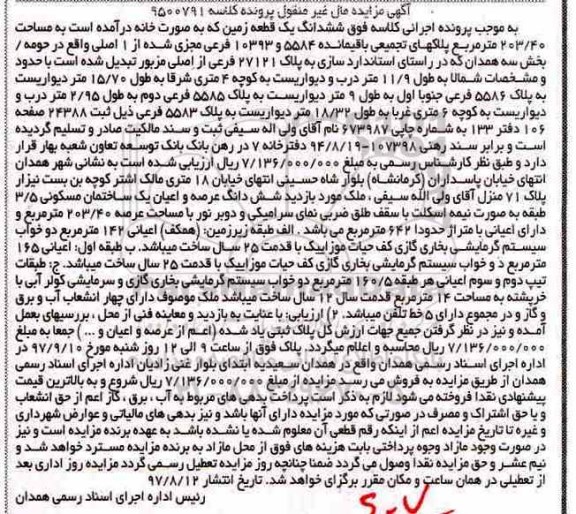 آگهی مزایده مال غیر منقول پرونده کلاسه ۹۵۰۰۷۹۱
به موجب پرونده اجرائی کلاسه فوق ششدانگ یک قطعه زمین که به صورت خانه درآمده است به مساحت
۲۰۳/۴۰ مترمربع پلاکهای تجمیعی باقیمانده ۵۵۸۴ و ۱۰۳۹۳ فرعی مجزی شده از ۱ اصلی واقع در حومه /
بخش سه همدان که در راستای استاندارد سازی به پلاک ۲۷۱۲۱ فرعی از اصلی مزبور تبدیل شده است با حدود
و مشخصات شمالا به طول ۱۱/۹ متر درب و دیواریست به کوچه ۴ متری شرقا به طول ۱۵/۷۰ متر دیواریست
به پلاک ۵۵۸۶ فرعی جنوبا اول به طول ۹ متر دیواریست به پلاک ۵۵۸۵ فرعی دوم به طول ۲/۹۵ متر درب و
دیواریست به کوچه ۶ متری غربا به طول ۱۸/۳۲ متر دیواریست به پلاک ۵۵۸۳ فرعی ذیل ثبت ۲۴۳۸۸ صفحه
۱۰۶ دفتر ۱۳۳ به شماره چاپی ۶۷۳۹۸۷ نام آقای ولی اله سیفی ثبت و سند مالکیت صادر و تسلیم گردیده
است و برابر سند رهنی ۱۰۷۳۹۸-۹۴/۸/۱۹ دفترخانه ۷ در رهن بانک بانک توسعه تعاون شعبه بهار قرار
دارد و طبق نظر کارشناس رسمی به مبلغ ۷/۱۳۶/۰۰۰/۰۰۰ ریال ارزیابی شده است به نشانی شهر همدان
انتهای خیابان پاسداران (کرمانشاه) بلوار شاه حسینی انتهای خیابان ۱۸ متری مالک اشتر کوچه بن بست نیزار
پلاک ۷۱ منزل آقای ولی الله سیفی ، ملک مورد بازدید شش دانگ عرصه و اعیان یک ساختمان مسکونی ۳/۵
طبقه به صورت نیمه اسکلت با سقف طلق ضربی نمای سرامیکی و دوبر نور با مساحت عرصه ۲۰۳/۴۰ مترمربع و
دارای اعیانی با متراژ حدودا ۶۴۲ مترمربع می باشد . الف طبقه زیرزمین: (همکف) اعیانی ۱۴۲ مترمربع دو خواب
سیستم گرمایشی بخاری گازی کف حیات موزاییک با قدمت ۲۵ سال ساخت میباشد. ب طبقه اول: اعیانی ۱۶۵
مترمربع د و خواب سیستم گرمایشی بخاری گازی کف حیات موزاییک با قدمت ۲۵ سال ساخت میباشد. ج: طبقات
تیپ دوم و سوم اعیانی هر طبقه ۱۶۰/۵ مترمربع دو خواب سیستم گرمایشی بخاری گازی و سرمایشی کولر آبی با
خرپشته به مساحت ۱۴ مترمربع قدمت سال ۱۲ سال ساخت میباشد ملک موصوف دارای چهار انشعاب آب و برق
و گاز و در مجموع دارای ۵ خط تلفن میباشد. ۲) ارزیابی: با عنایت به بازدید و معاینه فنی از محل ، بررسیهای بعمل
آمده و نیز در نظر گرفتن جمیع جهات ارزش کل پلاک ثبتی یاد شده (اعم از عرصه و اعیان و ... ) جمعا به مبلغ
۷/۱۳۶/۰۰۰/۰۰۰ ریال محاسبه و اعلام میگردد. پلاک فوق از ساعت ۹ الی ۱۲ روز شنبه مورخ ۹۷/۹/۱۰ در
اداره اجرای اسناد رسمی همدان واقع در همدان سعیدیه ابتدای بلوار غنی زادیان اداره اجرای اسناد رسمی
همدان از طریق مزایده به فروش می رسد مزایده از مبلغ ۷/۱۳۶/۰۰۰/۰۰۰ ریال شروع و به بالاترین قیمت
پیشنهادی نقدا فروخته می شود لازم به ذکر است پرداخت بدهی های مربوط به آب ، برق ، گاز اعم از حق انشعاب
و یا حق اشتراک و مصرف در صورتی که مورد مزایده دارای آنها باشد و نیز بدهی های مالیاتی و عوارض شهرداری
و غیره تا تاریخ مزایده اعم از اینکه رقم قطعی آن معلوم شده یا نشده باشد به عهده برنده مزایده است و نیز
در صورت وجود مازاد وجوه پرداختی بابت هزینه های فوق از محل مازاد به برنده مزایده مسترد خواهد شد و
نیم عشر و حق مزایده نقدا وصول می گردد ضمنا چنانچه روز مزایده تعطیل رسمی گردد مزایده روز اداری بعد
از تعطیلی در همان ساعت و مکان مقرر برگزای خواهد شد. تاریخ انتشار ۹۷/۸/۱۲
رئیس اداره اجرای اسناد رسمی همدان